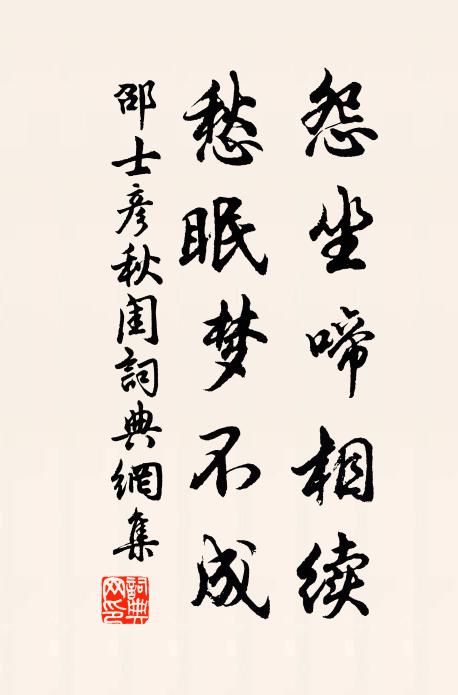 怨坐啼相续
愁眠梦不成
邵士彦秋闺詞典網集
詞典网印